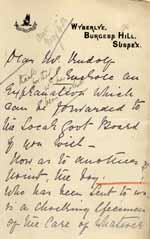 WYBERLYE,
BURGESS HILL,
SUSSEX.
Dear Mr. Rudolf
I Enclose an
Explanation which
can be forwarded to
the Local Govt Board
if you wish –
Now as to another
point the boy.
who has been sent to us
is a shocking specimen
of the care of